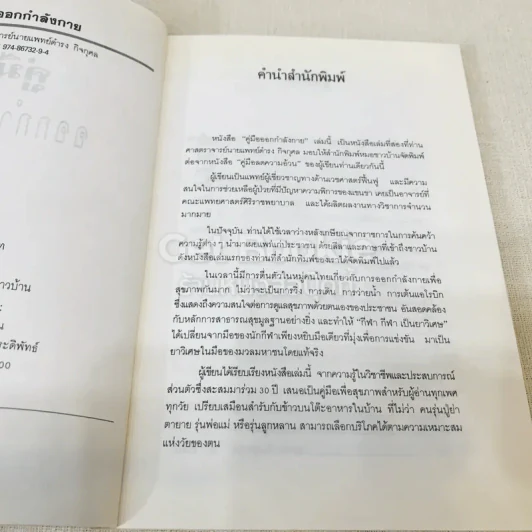 ออกกำลังกาย
ารย์นายแพทย์ดำรง กิจกุศล
974-86732-9-4
คู่มือ
ออกกำ
ท
าวบ้าน
น
ระดิพัทธ์
00
คำนำสำนักพิมพ์
หนังสือ "คู่มือออกกำลังกาย" เล่มนี้ เป็นหนังสือเล่มที่สองที่ท่าน
ศาสตราจารย์นายแพทย์ดำรง กิจกุศล มอบให้สำนักพิมพ์หมอชาวบ้านจัดพิมพ์
ต่อจากหนังสือ "คู่มือลดความอ้วน" ของผู้เขียนท่านเดียวกันนี้
ผู้เขียนเป็นแพทย์ผู้เชี่ยวชาญทางด้านเวชศาสตร์ฟื้นฟู และมีความ
สนใจในการช่วยเหลือผู้ป่วยที่มีปัญหาความพิการของแขนขา เคยเป็นอาจารย์ที่
คณะแพทยศาสตร์ศิริราชพยาบาล และได้ผลิตผลงานทางวิชาการจำนวน
มากมาย
ในปัจจุบัน ท่านได้ใช้เวลาว่างหลังเกษียณจากราชการในการค้นคว้า
ความรู้ต่างๆ นำมาเผยแพร่แก่ประชาชน ด้วยลีลาและภาษาที่เข้าถึงชาวบ้าน
ดังหนังสือเล่มแรกของท่านที่สำนักพิมพ์ของเราได้จัดพิมพ์ไปแล้ว
ในเวลานี้มีการตื่นตัวในหมู่คนไทยเกี่ยวกับการออกกำลังกายเพื่อ
สุขภาพกันมาก ไม่ว่าจะเป็นการวิ่ง การเดิน การว่ายน้ำ การเต้นแอโรบิก
ซึ่งแสดงถึงความสนใจต่อการดูแลสุขภาพด้วยตนเองของประชาชน อันสอดคล้อง
กับหลักการสาธารณสุขมูลฐานอย่างยิ่ง และทำให้ "กีฬา กีฬา เป็นยาวิเศษ"
ได้เปลี่ยนจากมือของนักกีฬาเพียงหยิบมือเดียวที่มุ่งเพื่อการแข่งขัน มาเป็น
ยาวิเศษในมือของมวลมหาชนโดยแท้จริง
ผู้เขียนได้เรียบเรียงหนังสือเล่มนี้ จากความรู้ในวิชาชีพและประสบการณ์
ส่วนตัวซึ่งสะสมมาร่วม 30 ปี เสนอเป็นคู่มือเพื่อสุขภาพสำหรับผู้อ่านทุกเพศ
ทุกวัย เปรียบเสมือนสำรับกับข้าวบนโต๊ะอาหารในบ้าน ที่ไม่ว่า คนรุ่นปู่ย่า
ตายาย รุ่นพ่อแม่ หรือรุ่นลูกหลาน สามารถเลือกบริโภคได้ตามความเหมาะสม
แห่งวัยของตน